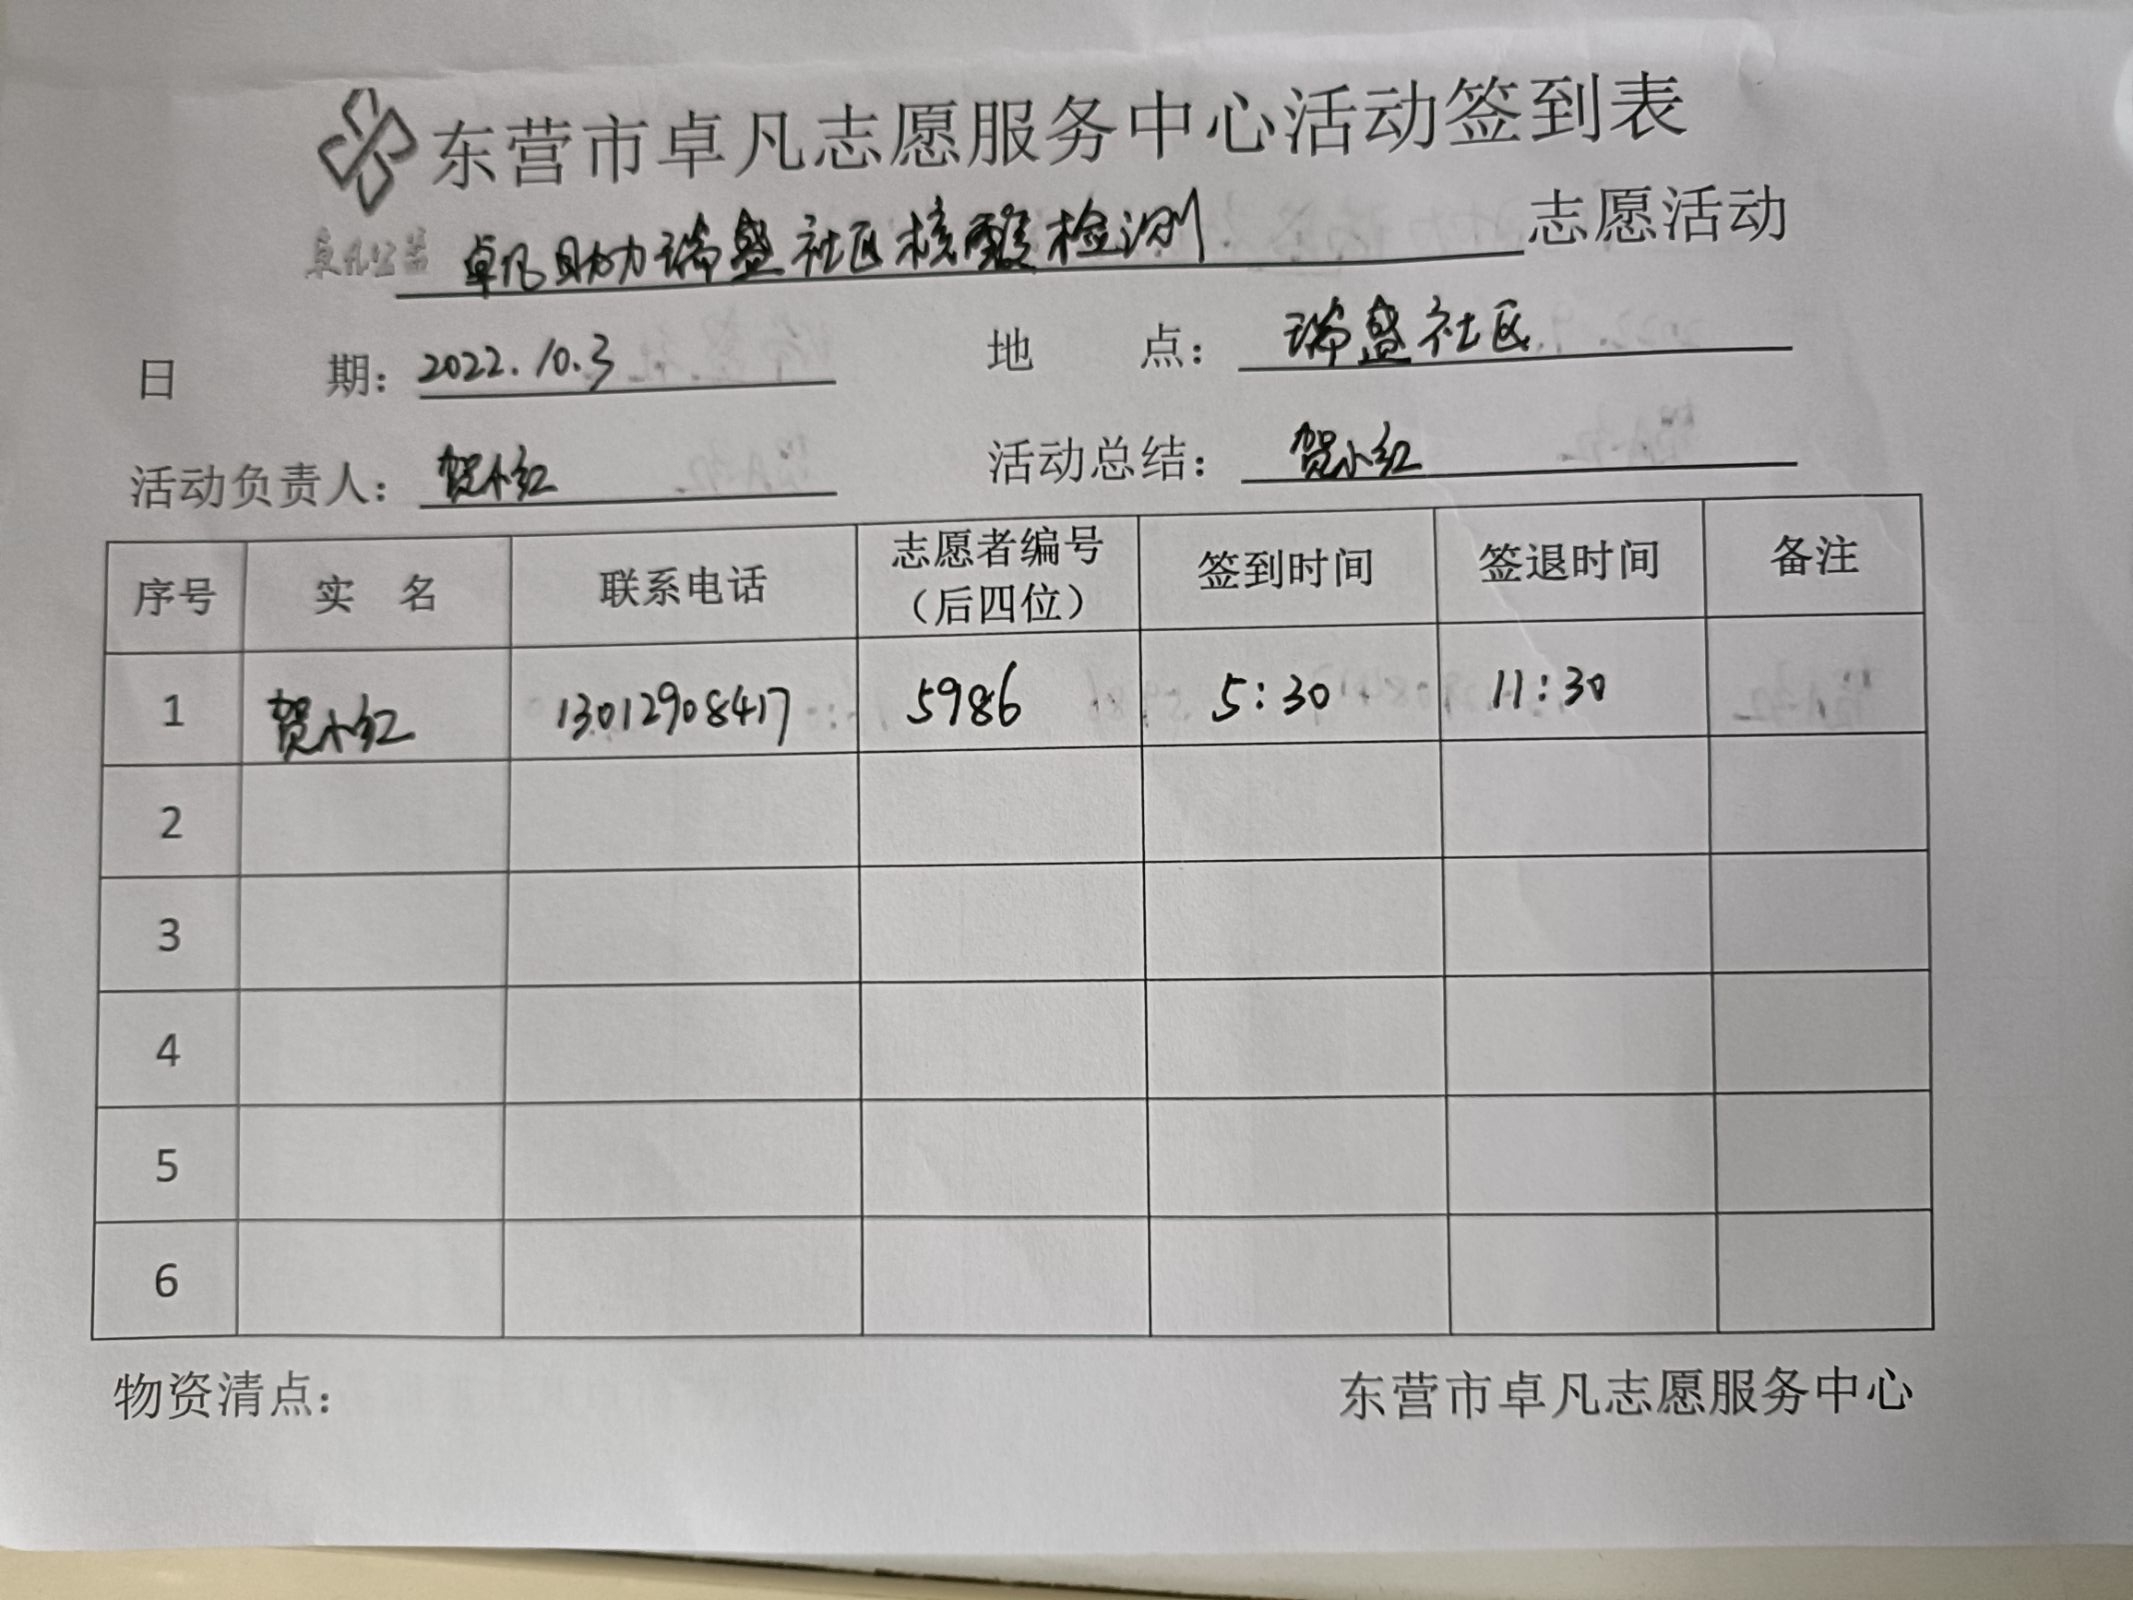 东营市卓凡志愿服务中心活动签到表
卓凡公益 卓凡助力瑞盛社区核酸检测 志愿活动
日 期：2022.10.3 地 点：瑞盛社区
活动负责人：贺小红 活动总结：贺小红
序号 实 名 联系电话 志愿者编号（后四位） 签到时间 签退时间 备注
1 贺小红 13012908417 5986 5:30 11:30
2
3
4
5
6
物资清点： 东营市卓凡志愿服务中心